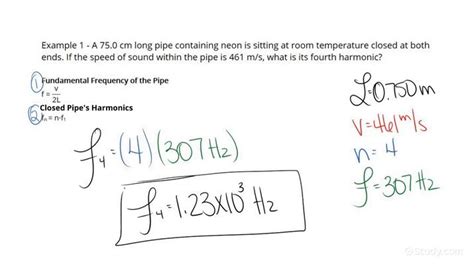 Example 1 - A 75.0 cm long pipe containing neon is sitting at room temperature closed at both
ends. If the speed of sound within the pipe is 461 m/s, what is its fourth harmonic?
① Fundamental Frequency of the Pipe
f = v/2L
② Closed Pipe's Harmonics
fₙ = n·f₁
f₄ = (4)(307 Hz)
f₄ = 1.23x10³ Hz
L = 0.750 m
V = 461 m/s
n = 4
f = 307 Hz
Study.com